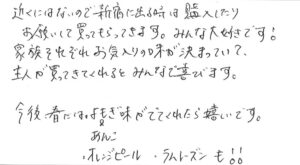 近くにはないので新宿に出る時は購入したり
お願いして買ってもらってきます。みんな大好きです!
家族それぞれお気入りの味が決まっていて、
主人が買ってきてくれるとみんなで喜びます。
今後、春にはよもぎ味がでてくれたら嬉しいです。
あんこ
・オレンジピール ・ラムレーズン も!!